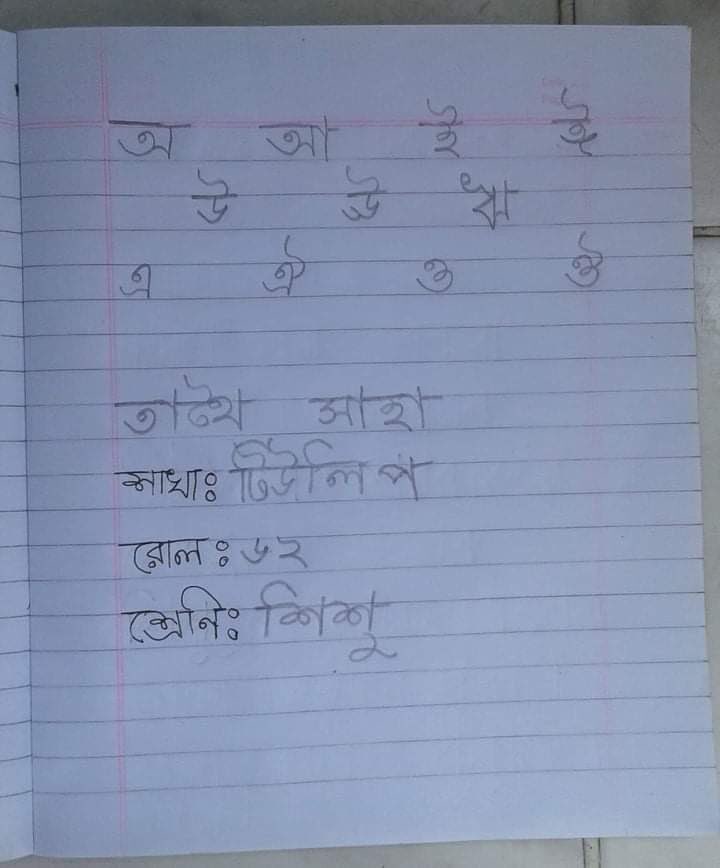 অ আ ই ঈ
উ ঊ ঋ
এ ঐ ও ঔ
সাহা
শাখাঃ টিউলিপ
রোলঃ ৬২
শ্রেনিঃ শিশু